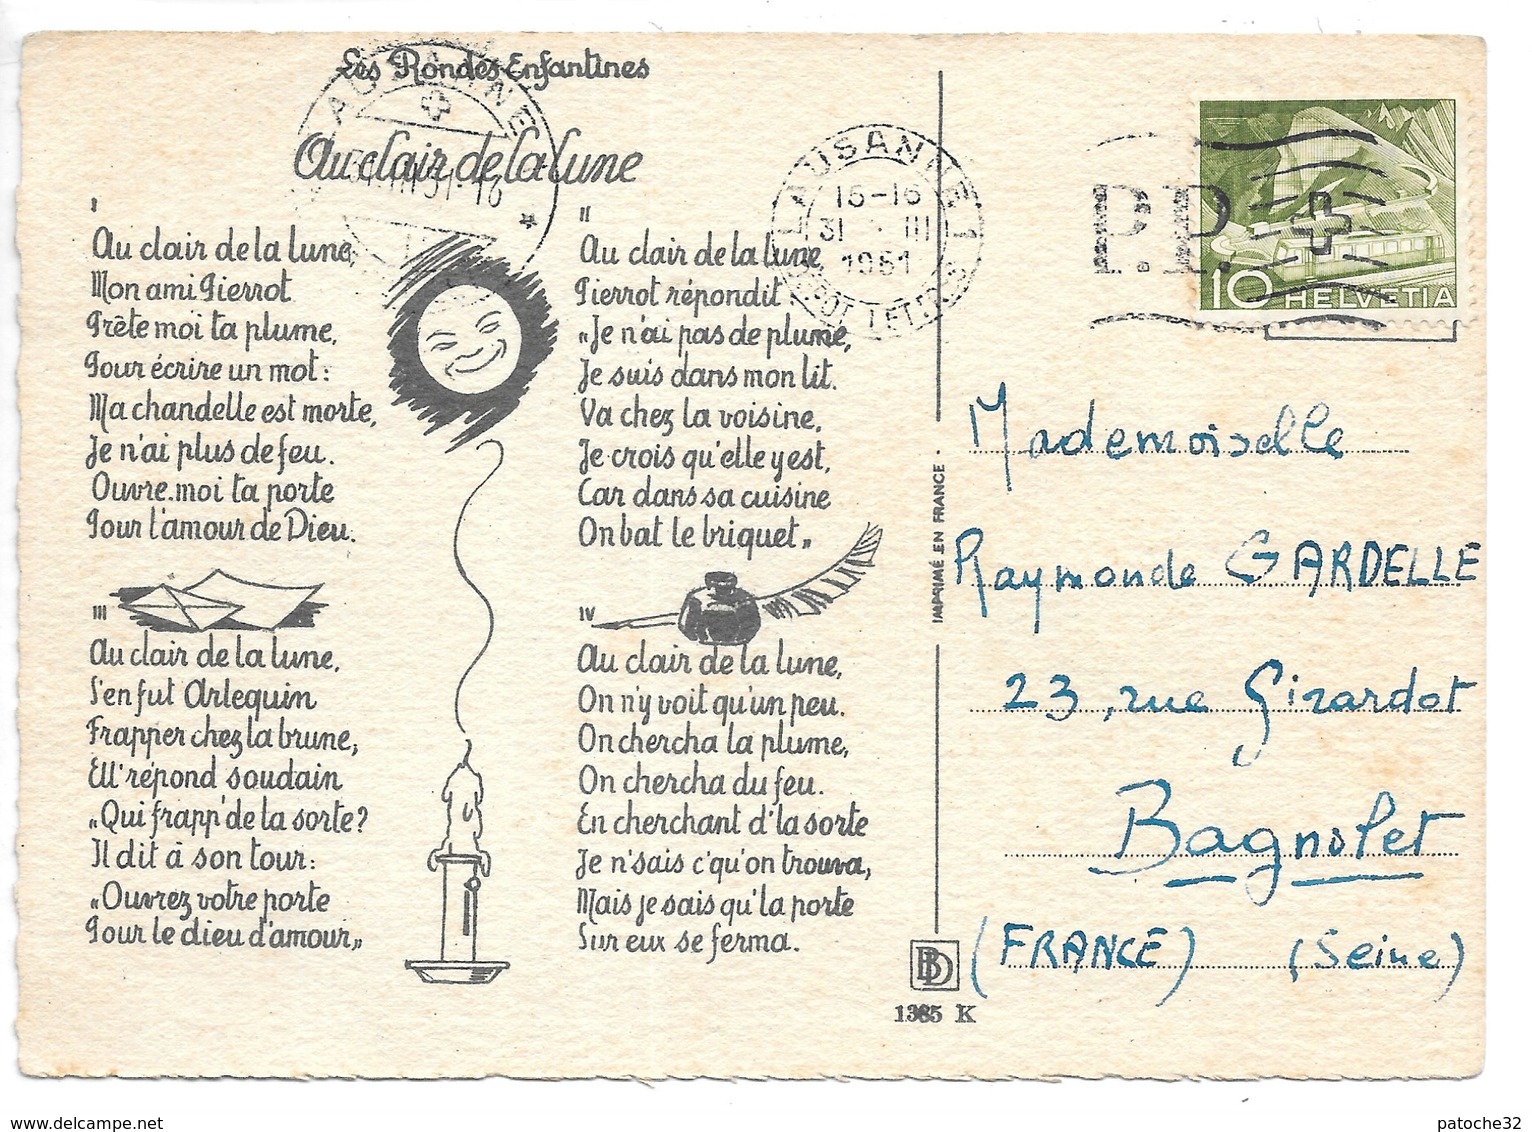 Les Rondes Enfantines
Au clair de la lune
I
Au clair de la lune,
Mon ami Pierrot
Prête moi ta plume,
Pour écrire un mot:
Ma chandelle est morte,
Je n'ai plus de feu.
Ouvre-moi ta porte
Pour l'amour de Dieu.
II
Au clair de la lune
Pierrot répondit
„Je n'ai pas de plume,
Je suis dans mon lit.
Va chez la voisine,
Je crois qu'elle y est,
Car dans sa cuisine
On bat le briquet„
III
Au clair de la lune,
S'en fut Arlequin
Frapper chez la brune,
Ell' répond soudain
„Qui frapp' de la sorte?
Il dit à son tour:
„Ouvrez votre porte
Pour le dieu d'amour„
IV
Au clair de la lune,
On n'y voit qu'un peu.
On chercha la plume,
On chercha du feu.
En cherchant d'la sorte
Je n'sais c'qu'on trouva,
Mais je sais qu'la porte
Sur eux se ferma.
IMPRIMÉ EN FRANCE
BD
1385 K
LAUSANNE
LAUSANNE 1
15-16
31 III
1951
P.P.
10 HELVETIA
Mademoiselle
Raymonde GARDELLE
23, rue Girardot
Bagnolet
(FRANCE) (Seine)
www.delcampe.net
patoche32